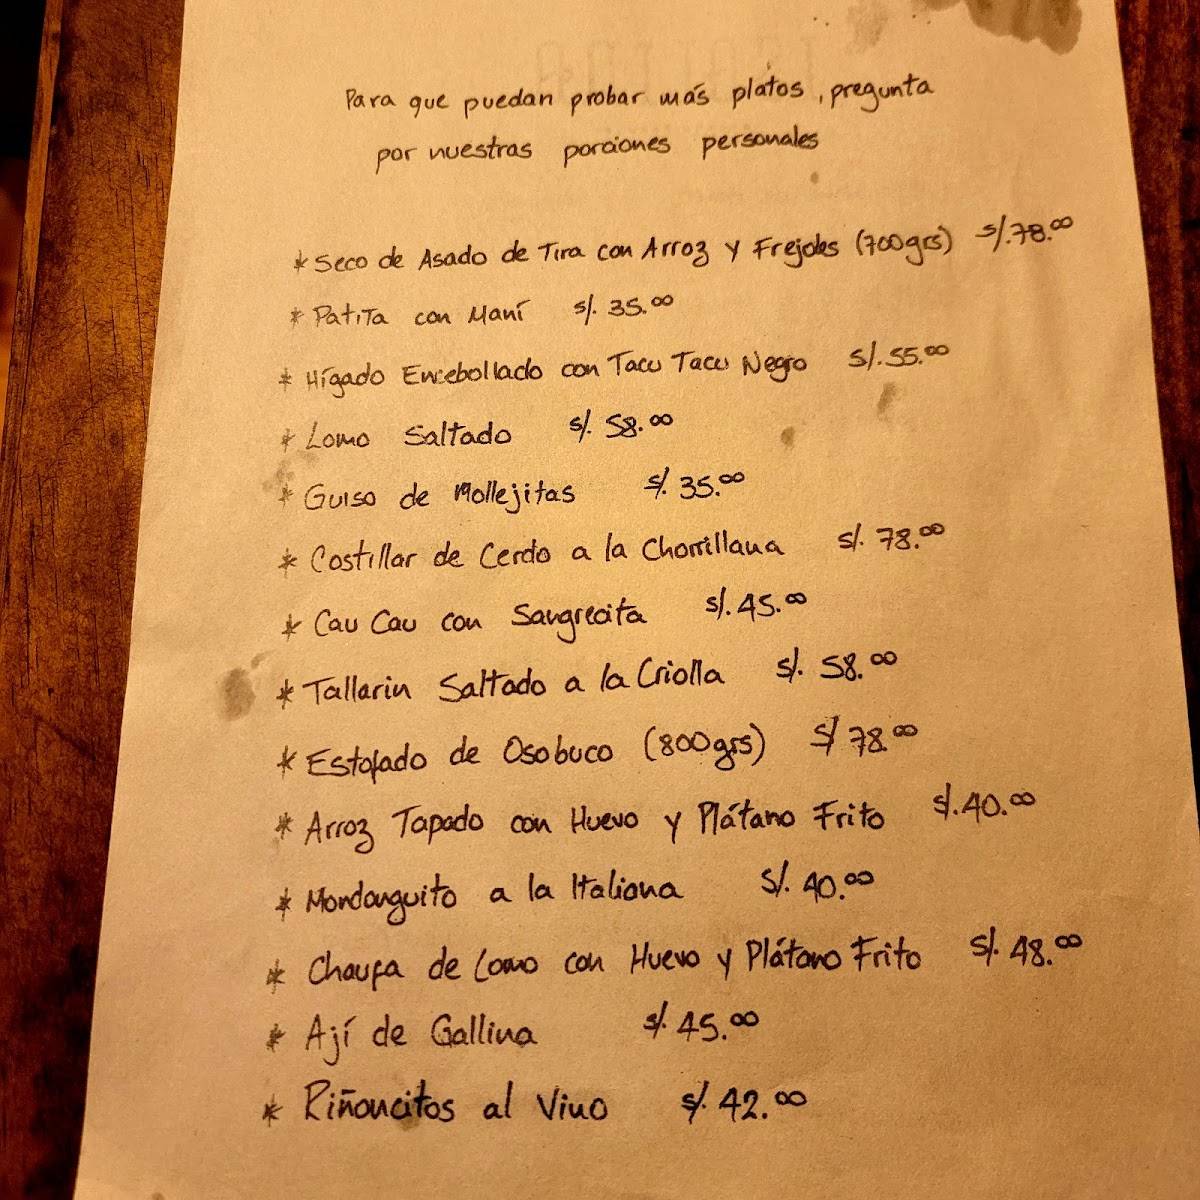 Para que puedan probar más platos, pregunta
por nuestras porciones personales
* Seco de Asado de Tira con Arroz y Frejoles (700grs) S/.78.00
* Patita con Maní S/. 35.00
* Hígado Encebollado con Tacu Tacu Negro S/.55.00
* Lomo Saltado S/. 58.00
* Guiso de Mollejitas S/. 35.00
* Costillar de Cerdo a la Chorrillana S/. 78.00
* Cau Cau con Sangrecita S/. 45.00
* Tallarin Saltado a la Criolla S/. 58.00
* Estofado de Osobuco (800grs) S/ 78.00
* Arroz Tapado con Huevo y Plátano Frito S/.40.00
* Mondonguito a la Italiana S/. 40.00
* Chaufa de Lomo con Huevo y Plátano Frito S/. 48.00
* Ají de Gallina S/. 45.00
* Riñoncitos al Vino S/. 42.00